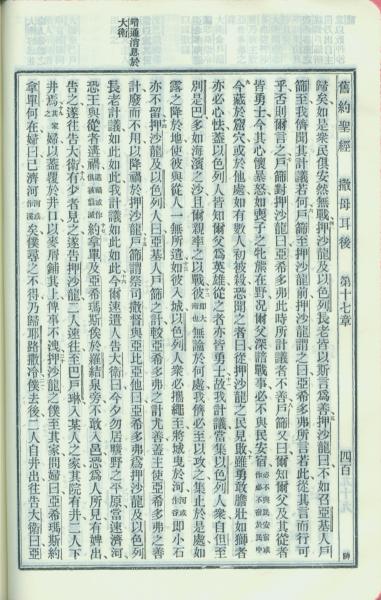 舊約聖經 撒母耳後 第十七章 四百
歸矣如是衆民俱安然無戰押沙龍及以色列長老皆以斯言爲善押沙龍曰不如召亞基人戶
篩至我儕聞其計議若何戶篩至押沙龍前押沙龍謂之曰亞希多弗所言若此從其言而行可
乎否則爾言之戶篩對押沙龍曰亞希多弗此時所計議者不善戶篩又曰爾知爾父及其從者
皆勇士今其心懷暴怒如喪子之牝熊在野况爾父深諳戰事必不與民安宿必不與民安宿或作必不宿於民中
今藏於窟穴或於他處如有數人初被殺忽聞之者曰從押沙龍之民見敗雖勇敢膽壯如獅者
亦必心怯蓋以色列人皆知爾父爲英雄從之者亦皆勇士故我計議當集以色列人衆自但至
別是巴多如海濱之沙且爾親率之以戰彼卽大衛也無論於何處我儕必至以攻之集止於是處如
露之降於地使彼與從人一無所遺如彼入城以色列人衆必攜繩至將城曳於河河或作谷卽小石
亦不留押沙龍及以色列人曰亞基人戶篩之計較亞希多弗之計尤善蓋主使亞希多弗之善
計廢而不用以降禍於押沙龍戶篩謂祭司撒督與亞比亞他曰亞希多弗爲押沙龍及以色列
長老計議如此如此我計議如此如此今爾速遣人告大衛曰今夕勿居曠野之平原當速濟河
恐王與從者遘禍遘禍或作俱被翦滅約拿單及亞希瑪斯俟於羅結泉旁不敢入邑恐爲人所見有婢出
告之遂往告大衛有少者見之遂告押沙龍二人速往至巴戶琳入某人之家其院有井二人下
井焉其家之婦以蓋覆於井口以麥屑鋪其上俾事不洩押沙龍之僕至其家問婦曰亞希瑪斯約
拿單何在婦曰已濟河河或作溪矣僕尋之不得乃歸耶路撒冷僕去後二人自井出往告大衛曰亞
暗通消息於
大衛